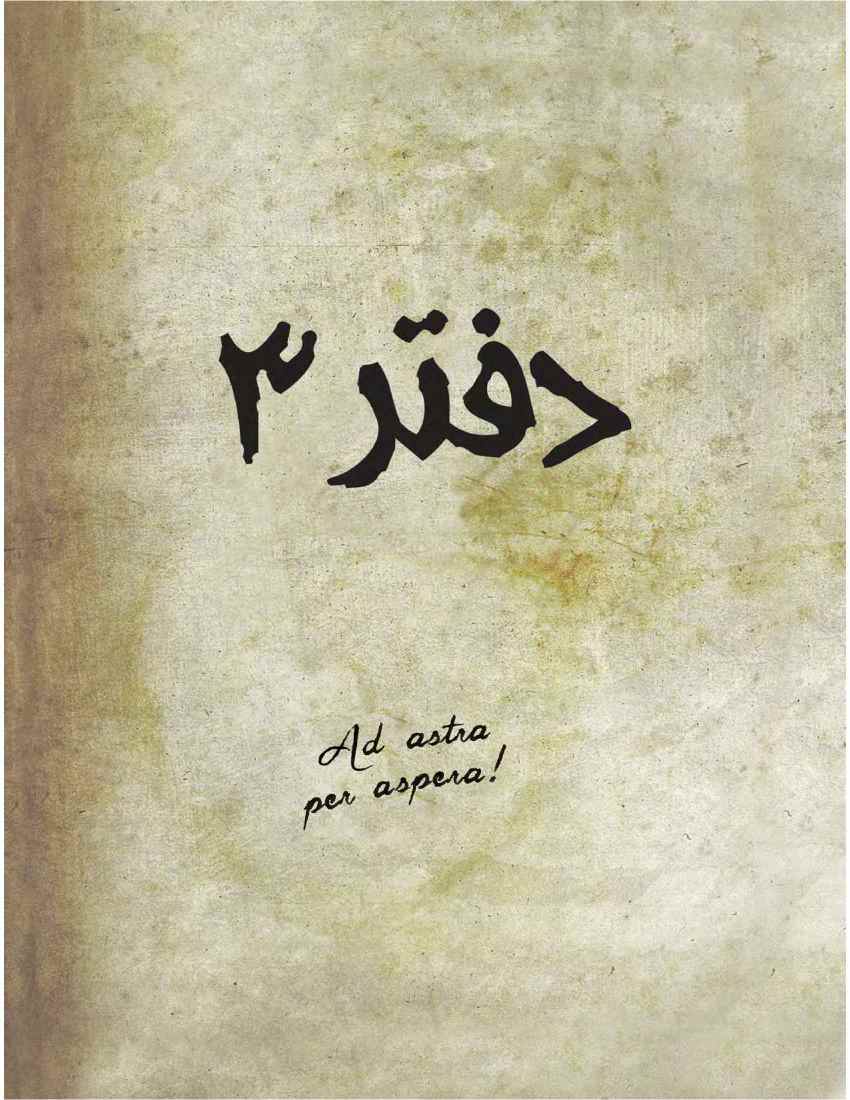 دفتر ۳
Ad astra
per aspera!